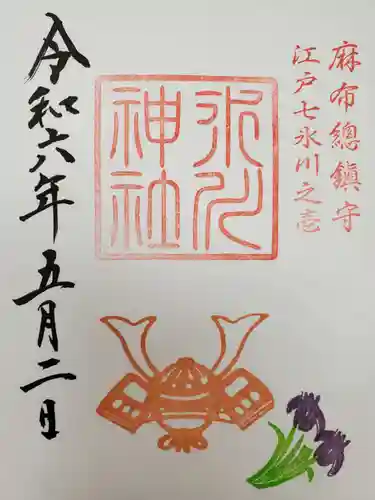 麻布總鎮守
江戸七氷川之壱
氷川
神社
令和六年五月二日